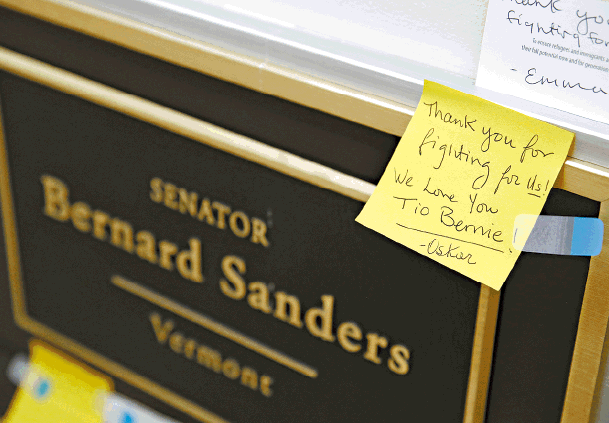 Thank you
fighting for
To ensure refugees and immigrants
their full potential now and for generations
- Emma
Thank you for
fighting for Us!
We Love You
Tio Bernie!
-Oskar
SENATOR
Bernard Sanders
Vermont